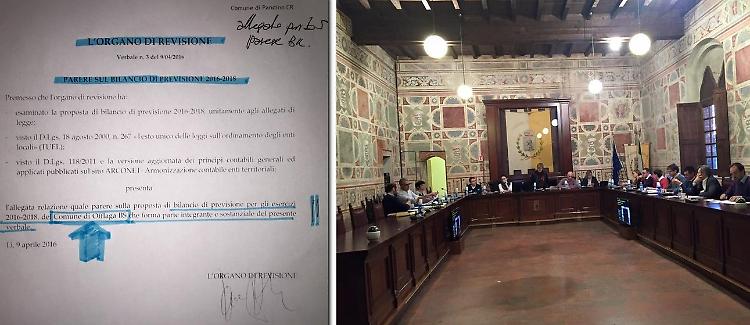 Comune di Pandino CR
allegato punto 5
parere BR.
L'ORGANO DI REVISIONE
Verbale n. 3 del 9/04/2016
PARERE SUL BILANCIO DI PREVISIONE 2016-2018
Premesso che l'organo di revisione ha:
- esaminato la proposta di bilancio di previsione 2016-2018, unitamente agli allegati di
legge;
- visto il D.Lgs. 18 agosto 2000, n. 267 «Testo unico delle leggi sull'ordinamento degli enti
locali» (TUEL);
- visto il D.Lgs. 118/2011 e la versione aggiornata dei principi contabili generali ed
applicati pubblicati sul sito ARCONET- Armonizzazione contabile enti territoriali;
presenta
l'allegata relazione quale parere sulla proposta di bilancio di previsione per gli esercizi
2016-2018, del Comune di Offlaga BS che forma parte integrante e sostanziale del presente
verbale.
Lì, 9 aprile 2016
L'ORGANO DI REVISIONE